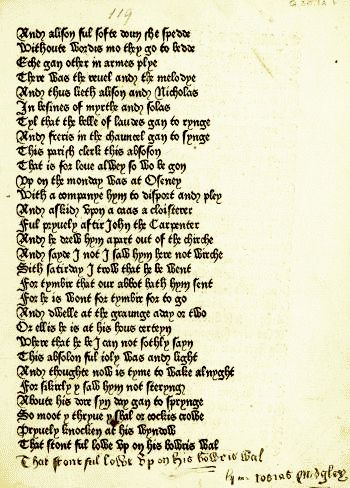 119
And alison ful softe doun she spedde
Withoute wordis mo they go to bedde
Eche gan other in armes plye
There was the reuel and the melodye
And thus lieth alison and Nicholas
In besines of myrthe and solas
Tyl that the belle of laudes gan to rynge
And freris in the chauncel gan to synge
This parish clerk this absolon
That is for love alwey so wo be gon
Vp on the monday was at Oseney
With a companye hym to disport and pley
And askid vpon a caas a cloisterer
Ful pryuely aftir John the Carpenter
And he drew hym apart out of the chirche
And sayde I not I saw hym here not wirche
Sith satirday I trow that he be went
For tymbir that our abbot hath hym sent
For he is wont for tymbir for to go
And dwelle at the graunge aday or two
Or ellis he is at his hous certeyn
Where that he be I can not sothly sayn
This absolon ful ioly was and light
And thoughte now is tyme to wake alnyght
For sikirly y saw hym not steryng
Aboute his dore syn day gan to sprynge
So moot y thryue y shal or cockis crowe
Pryuely knocken at his wyndow
That stont ful lowe vp on his bowris wal
That stont ful lowe vp on his bowris wal